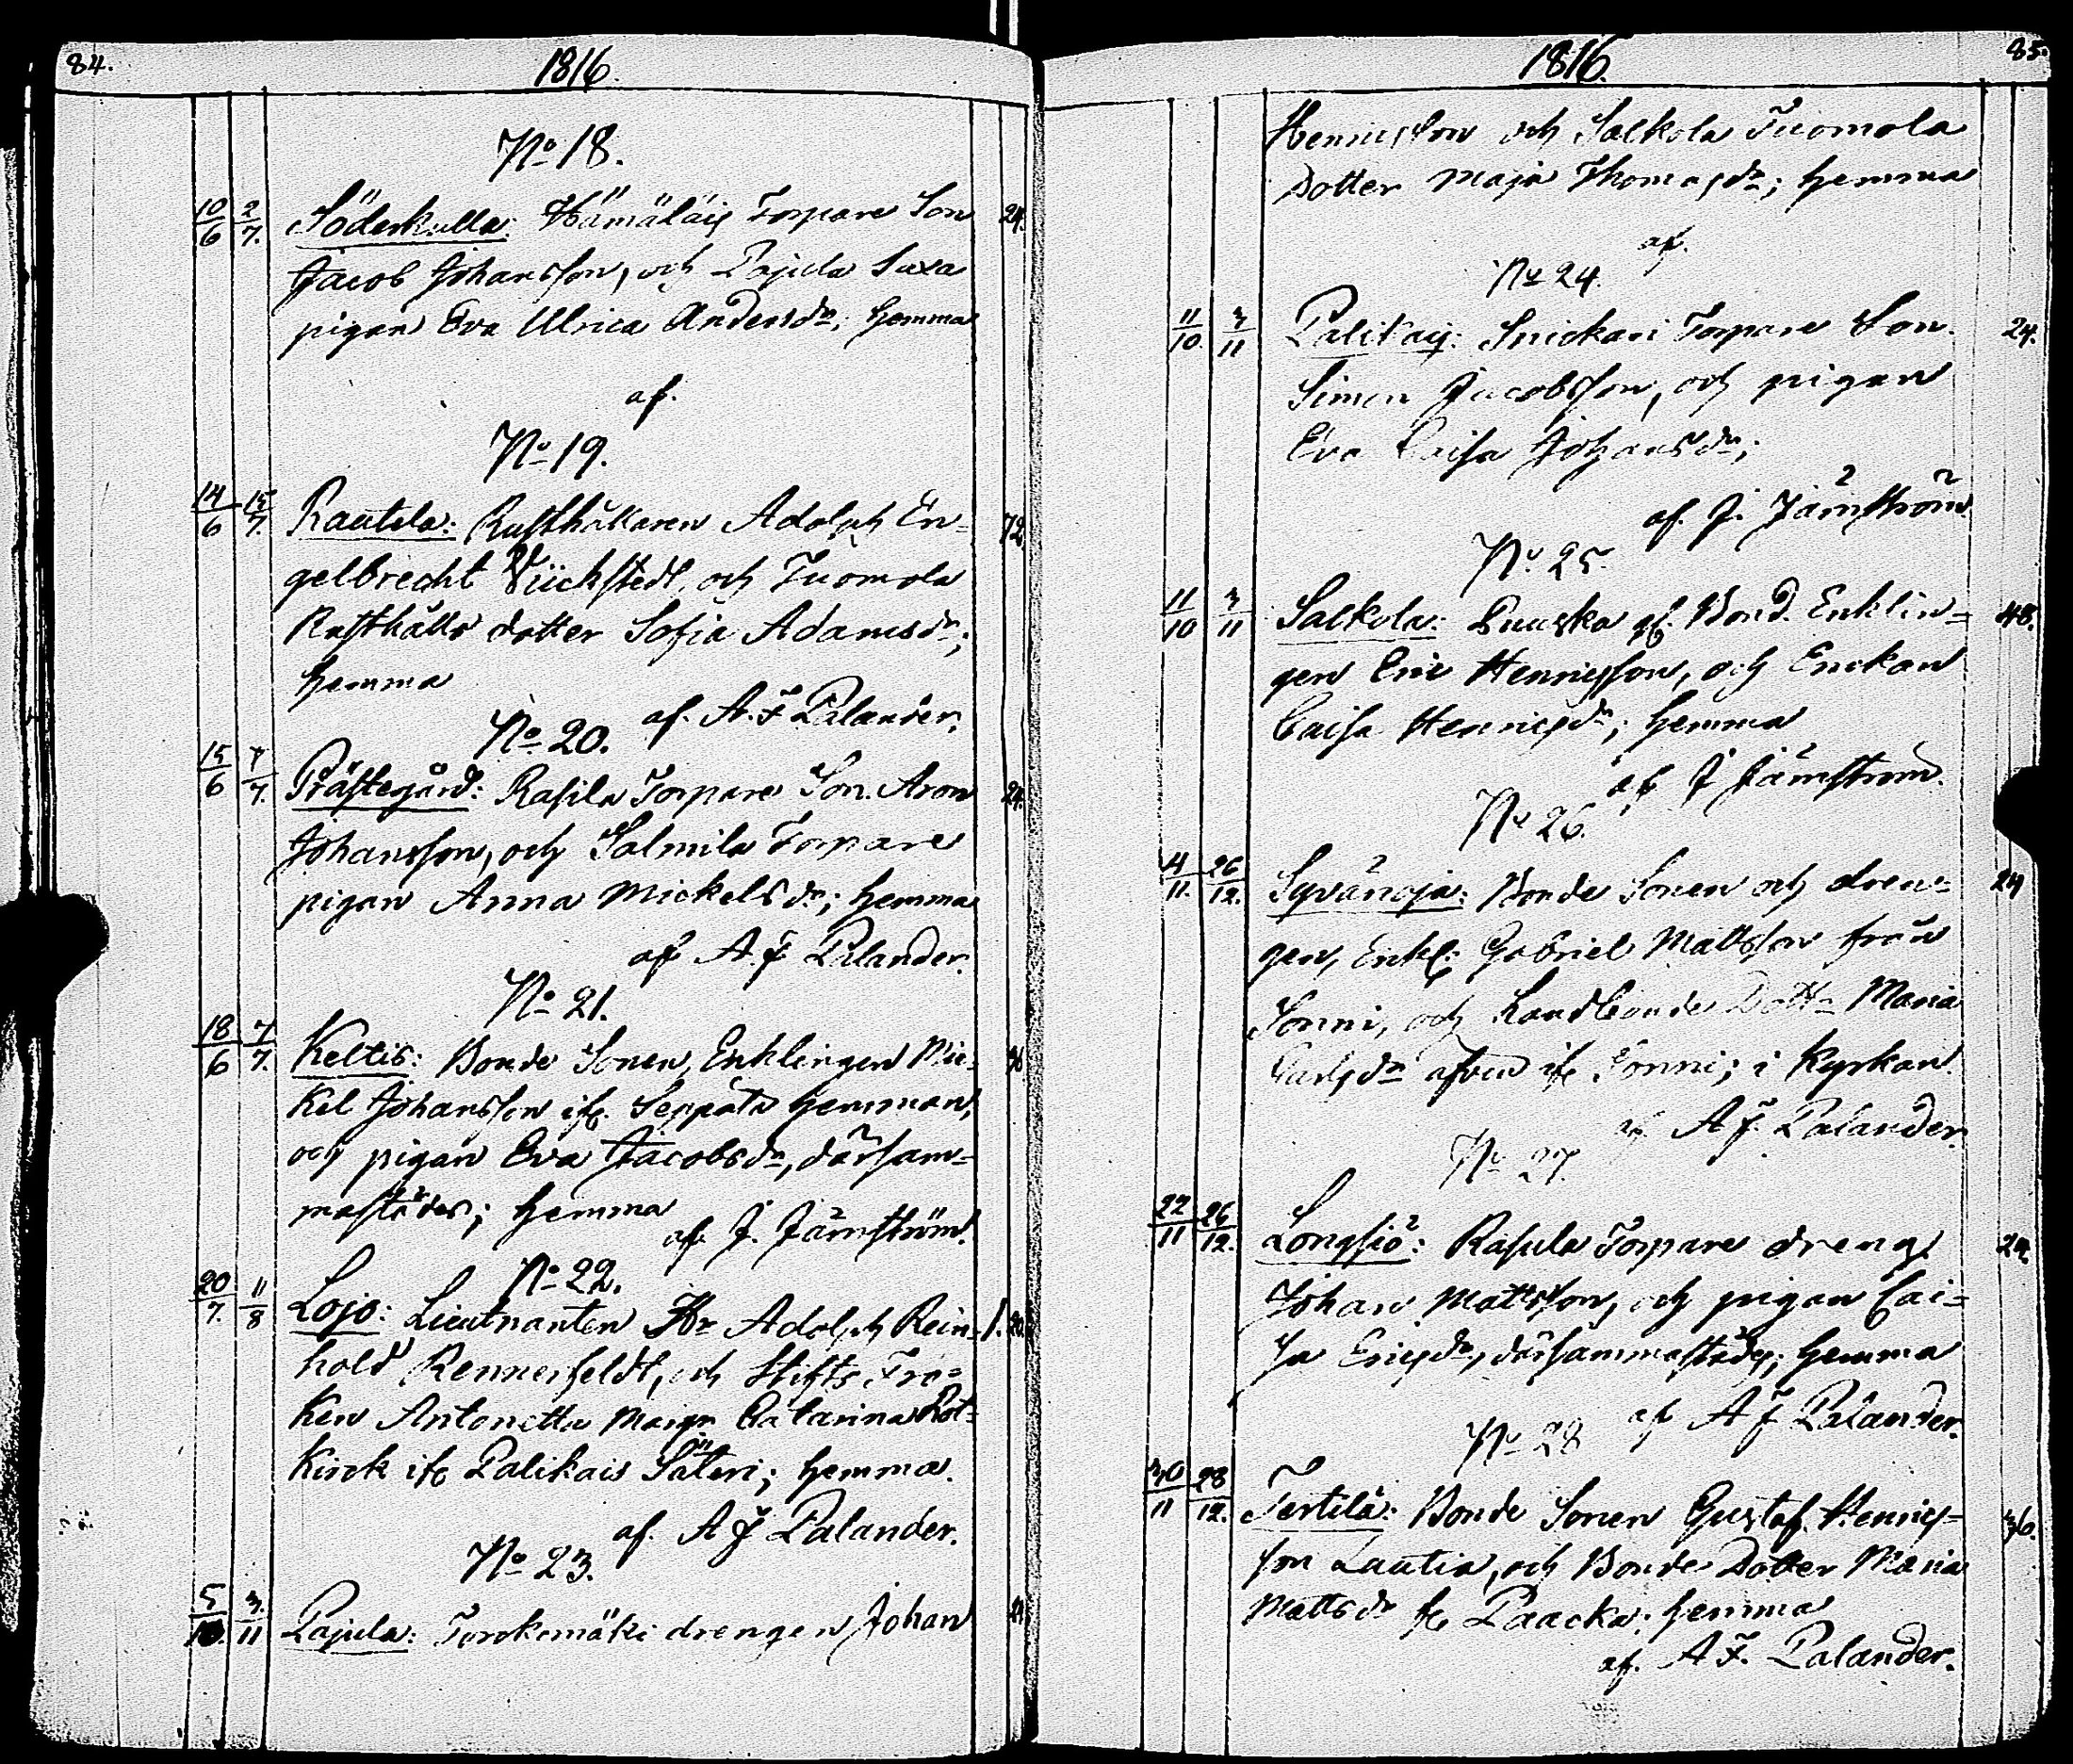 84.
1816.
No 18.
10/6 2/7. Söderkulla: Hämäläis Torpare Son 24.
Jacob Johansson, och Pajula Suxa
pigan Eva Ulrica Andersdr; hemma
af.
No 19.
14/6 15/7. Rautila: Rusthållaren Adolph En= 72
gelbrecht och Tuomola
Rusthålls dotter Sofia Adamsdr;
hemma
af. A. F Palander.
No 20.
15/6 7/7. Prästegård: Rasila Torpare Son. Aron 24.
Johansson, och Salmila Torpare
pigan Anna Mickelsdr; hemma
af A. F Palander.
No 21.
18/6 7/7. Keltis: Bonde Sonen, Enklingen Mic=
kel Johansson ifr. Seppälä hemman,
och pigan Eva Jacobsdr, därsam=
mastädes; hemma
af. J. Järnström.
No 22.
20/7. 11/8 Lojo: Lieutnanten Hr Adolph Rein= 1.20.
hold Rennerfeldt, och Stifts Frö=
ken Antonetta Margr Catarina Rot=
kirck ifr Palikais Säteri; hemma.
af. A F Palander.
No 23.
5/10. 3/11 Pajula: Torokmäki drengen Johan 24
1816.
85.
Henricsson och Salkola Tuomola
Dotter Maja Thomasdr; hemma
af.
No 24.
11/10. 3/11 Palikais: Snickari Torpare Son. 24.
Simon Jacobsson, och pigan
Eva Caisa Johansdr;
af. J. Järnström.
No 25.
11/10 3/11 Salkola: Puuska gf. Bond. Enklin= 48.
gen Eric Henricsson, och Enckan
Caisa Henricsdr; hemma
af J Järnström.
No 26.
4/11. 26/12. Syvänoja: Bonde Sonen och dren= 24
gen, Enkl: Gabriel Mattsson från
Sonni, och Landbonde Dottr Maria
Carlsdr äfven ifr Sonni; i Kyrkan.
af A F. Palander.
No 27.
22/11 26/12. Longsiö: Rasula Torpare dreng. 24.
Johan Mattsson, och pigan Cai=
sa Ericsdr, därsammastäds; hemma
af A F Palander.
No 28
30/11 28/12. Tertilä: Bonde Sonen Gustaf Henrics= 36.
son Lautia, och Bonde Dotter Maria
Mattsdr fr Paacka; hemma
af. A F. Palander.